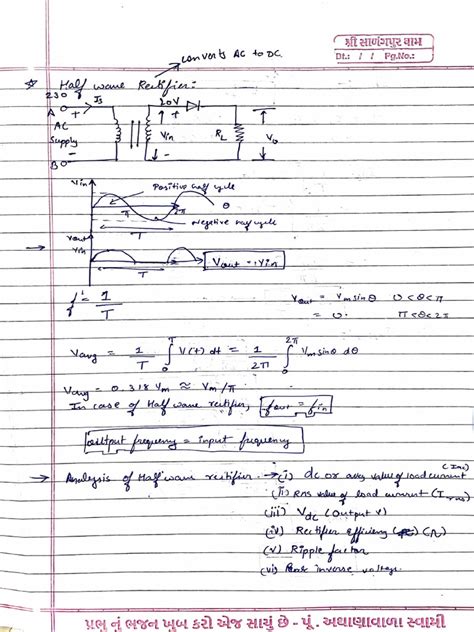 શ્રી સાળંગપુર ધામ
Dt.: / / Pg.No.:
converts AC to DC.
Half wave Rectifier:-
230
A
Is
20V
AC
Supply
Vin
RL
Vo
B
Vin
Positive half cycle
π
2π
θ
Negative half cycle
T
Vout
Vin
T
Vout = Vin
f = 1/T
Vout = Vm sinθ 0<θ<π
= 0. π<θ<2π
Vavg = 1/T ∫₀ᵀ V(t) dt = 1/2π ∫₀^2π Vm sinθ dθ
Vavg = 0.318 Vm ≈ Vm/π
In case of Half wave rectifier, fout = fin
output frequency = input frequency
→ Analysis of Half wave rectifier → (i) dc or avg value of load current
(ii) Rms value of load current (Irms)
(iii) Vdc (Output V)
(iv) Rectifier Efficiency (η)
(v) Ripple factor
(vi) Peak inverse voltage.
પ્રભુ નું ભજન ખુબ કરી એજ સાચું છે - પૂ. અથાણાવાળા સ્વામી